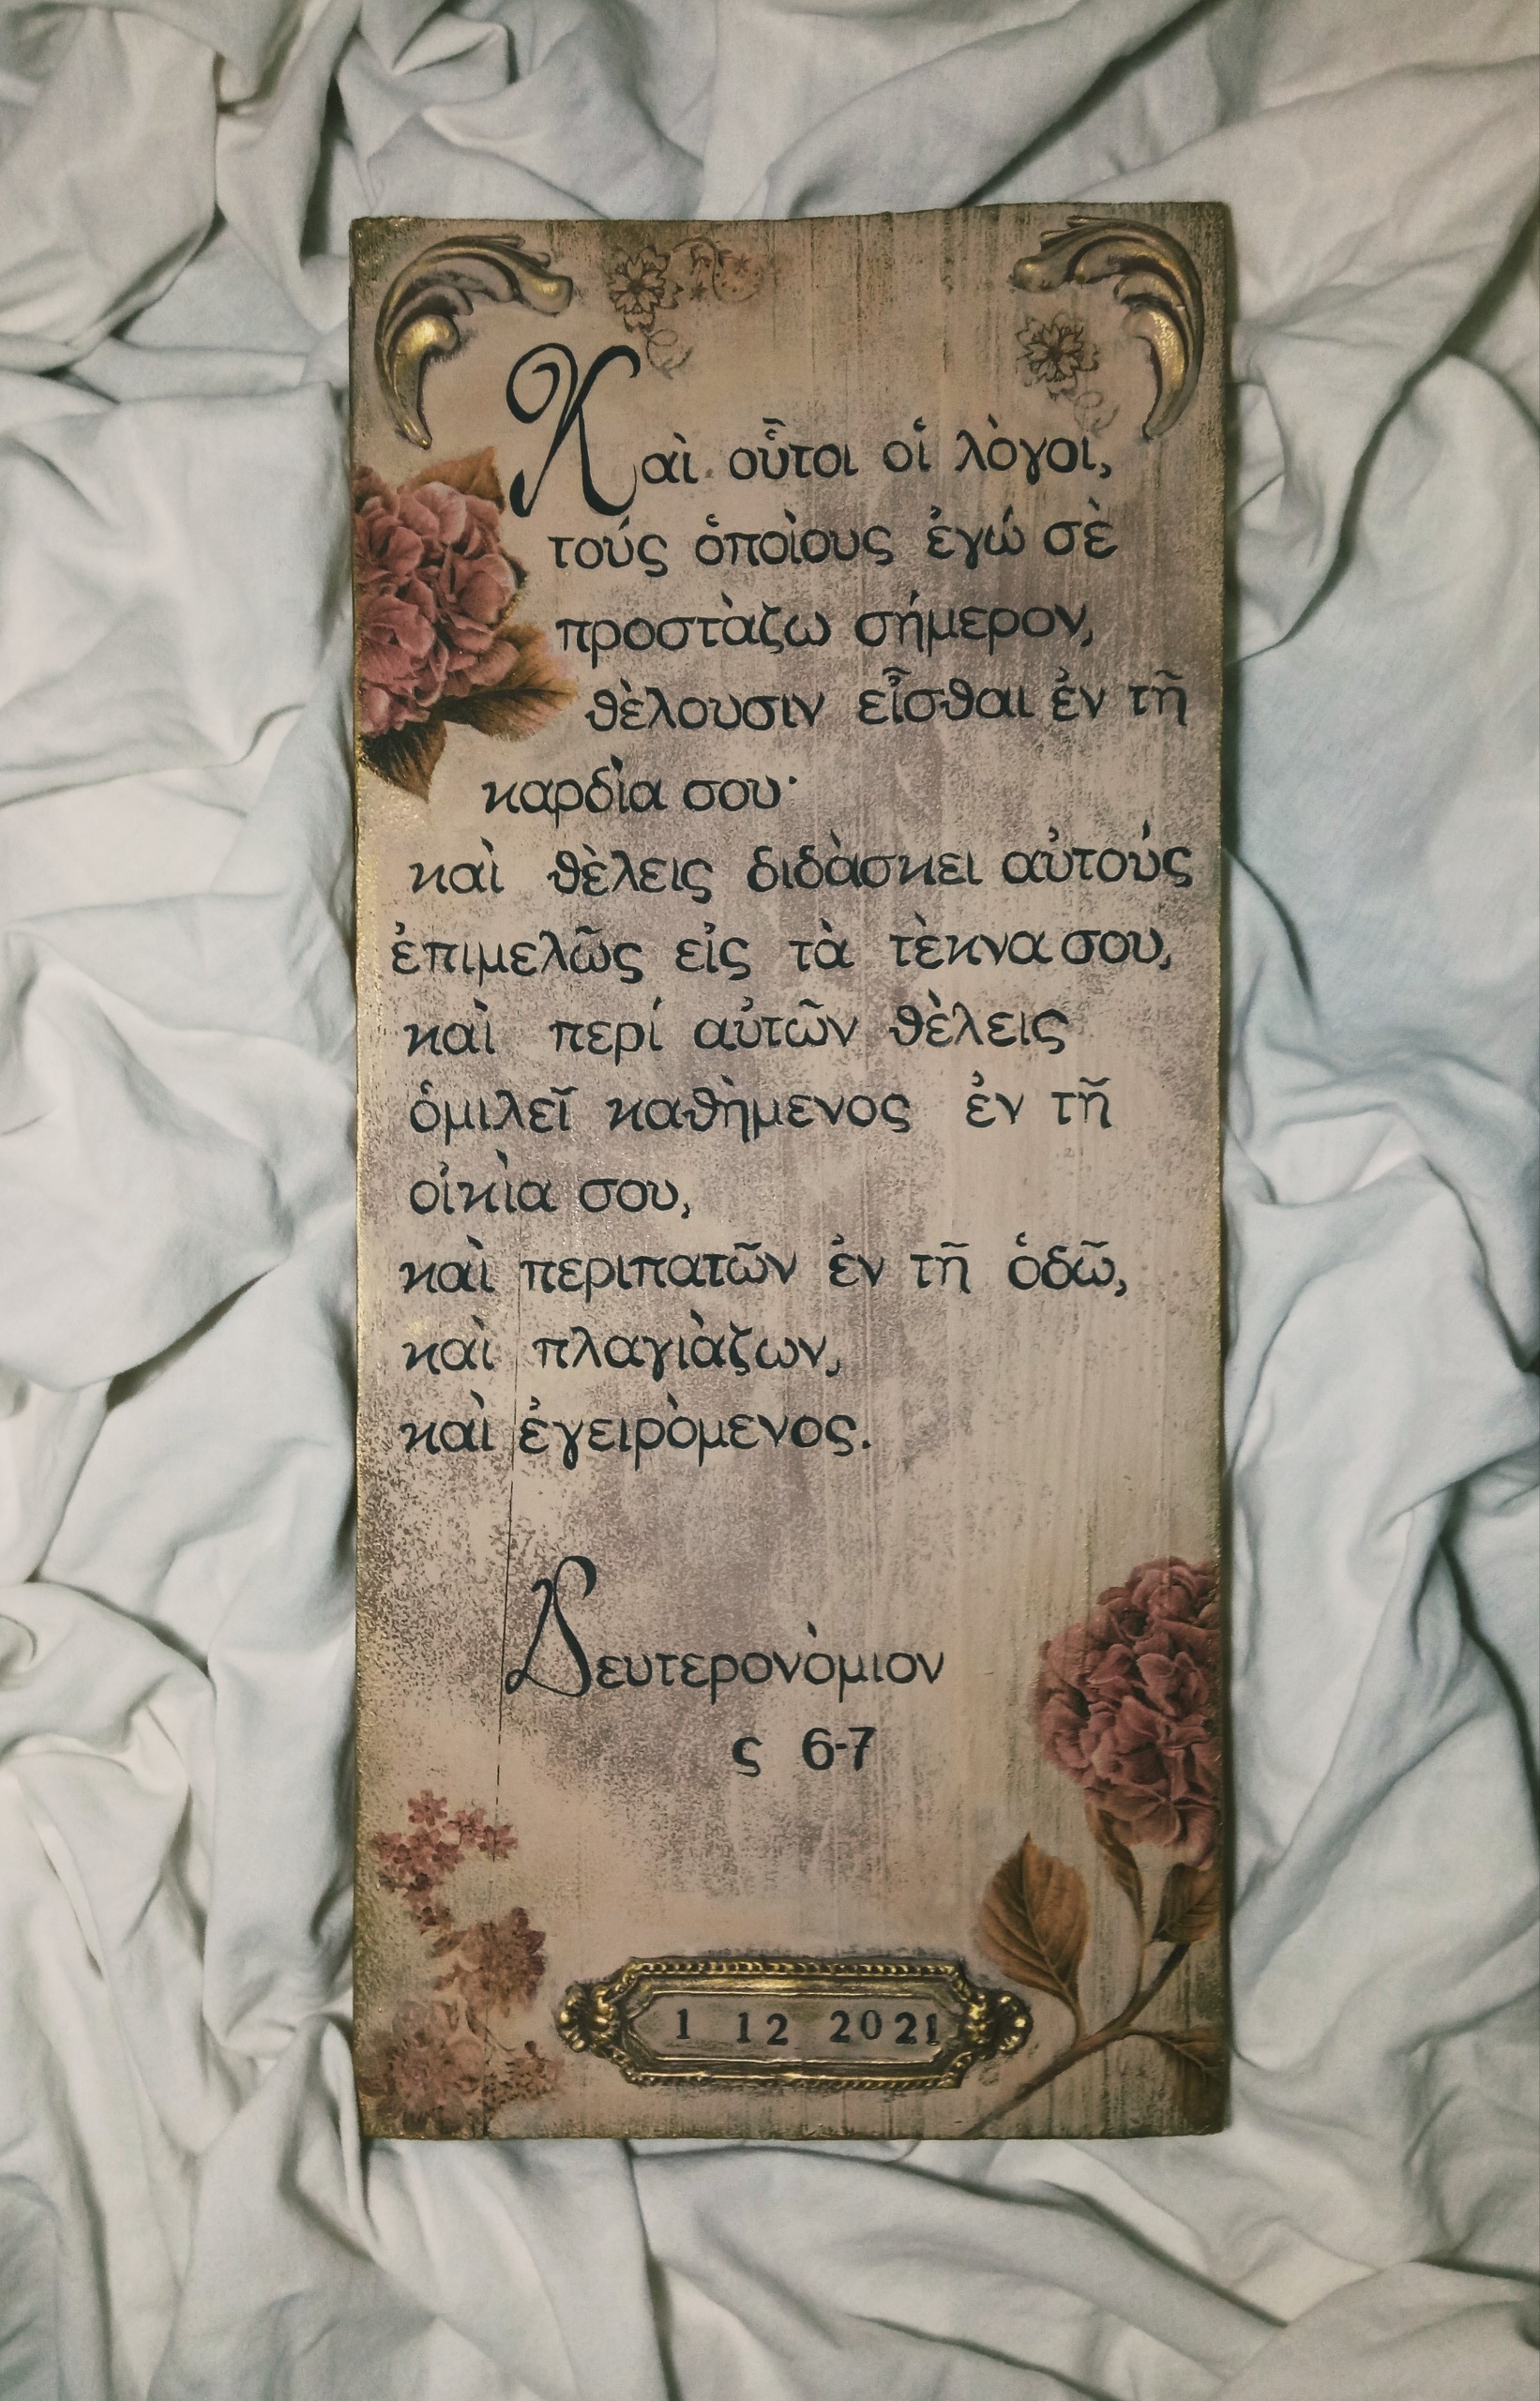 Καὶ οὗτοι οἱ λὸγοι,
τούς ὁποὶους ἐγώ σὲ
προστὰζω σήμερον,
θὲλουσιν εἶσθαι ἐν τῆ
καρδὶα σου·
καὶ θὲλεις διδὰσκει αὐτούς
ἐπιμελῶς εἰς τὰ τὲκνα σου,
καὶ περί αὐτῶν θὲλεις
ὁμιλεῖ καθὴμενος ἐν τῆ
οἰκὶα σου,
καὶ περιπατῶν ἐν τῆ ὁδῶ,
καὶ πλαγιὰζων,
καὶ ἐγειρὸμενος.
Δευτερονὸμιον
ς 6-7
1 12 2021